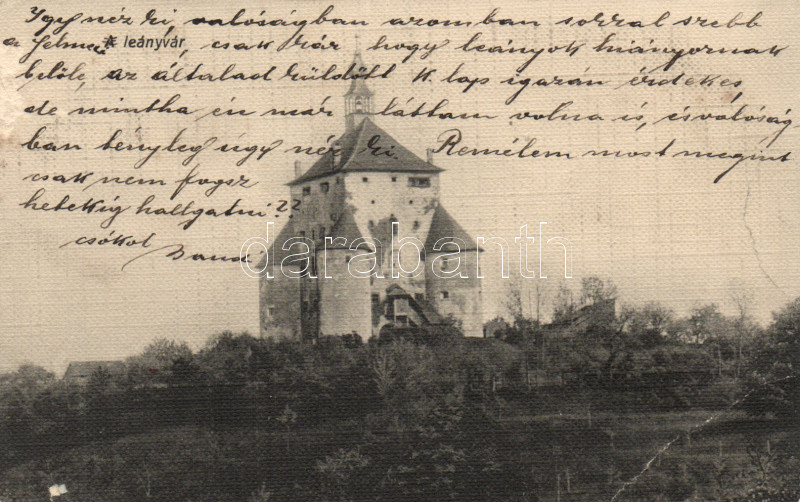 Igy néz ki, valóságban azomban sokkal szebb
a Selmeci leányvár, csak kár hogy leányok hiányoznak
belőle, az általad küldött k. lap igazán érdekes,
de mintha én már láttam volna is, és valóság
ban tényleg úgy néz ki. Remélem most megint
csak nem fogsz
hetekig hallgatni??
csókol
Bandi
darabanth